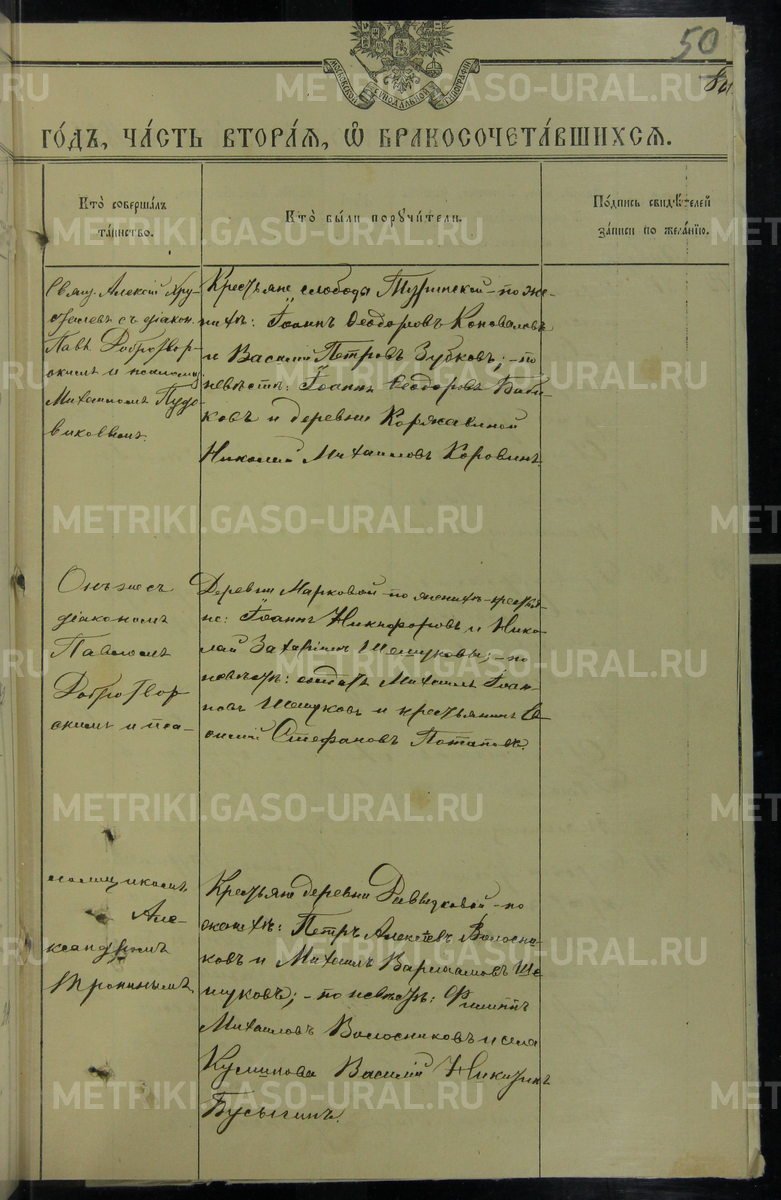 50
МОСКОВСКОЙ СѴНОДАЛЬНОЙ ТИПОГРАФІИ
ГО́ДЪ, ЧА́СТЬ ВТОРА́Я, Ѡ҆ БРАКОСОЧЕТА́ВШИХСЯ.
Кто̀ соверша́лъ
та́инство.
Кто̀ бы́ли порꙋчи́тели.
По́дпись свидѣ́телей
за́писи по жела́нїю.
Свящ. Алексій Хру-
съ діакон.
Пав. Добротвор-
скимъ и псаломщ.
Михаиломъ Лудо-
виковымъ.
Крестьяне слободы Туринской - по же-
нихѣ: Іоаннъ Ѳеодоровъ Коноваловъ
и Василій Петровъ Зубковъ; - по
невѣстѣ: Іоаннъ Ѳеодоровъ Баби-
ковъ и деревни Коржавиной
Николай Михаиловъ Коровинъ.
Онъ же съ
діакономъ
Павломъ
Добротвор
скимъ и пса-
Деревни Марковой - по женихѣ - крестья-
не: Іоаннъ Никифоровъ и Нико-
лай Захаріинъ Шешуковы; - по
невѣстѣ: солдатъ Михаилъ Іоан-
новъ Шешуковъ и крестьянинъ
Стефановъ Потаповъ.
ломщикомъ
Але-
ксандромъ
Тронинымъ
Крестьяне деревни Давыдковой - по
женихѣ: Петръ Алексѣевъ Волосни-
ковъ и Михаилъ Варлаамовъ Ше-
шуковъ; - по невѣстѣ: Филиппъ
Михаиловъ Волосниковъ и села
Куминова Василій Никитинъ
Бусыгинъ.
METRIKI.GASO-URAL.RU